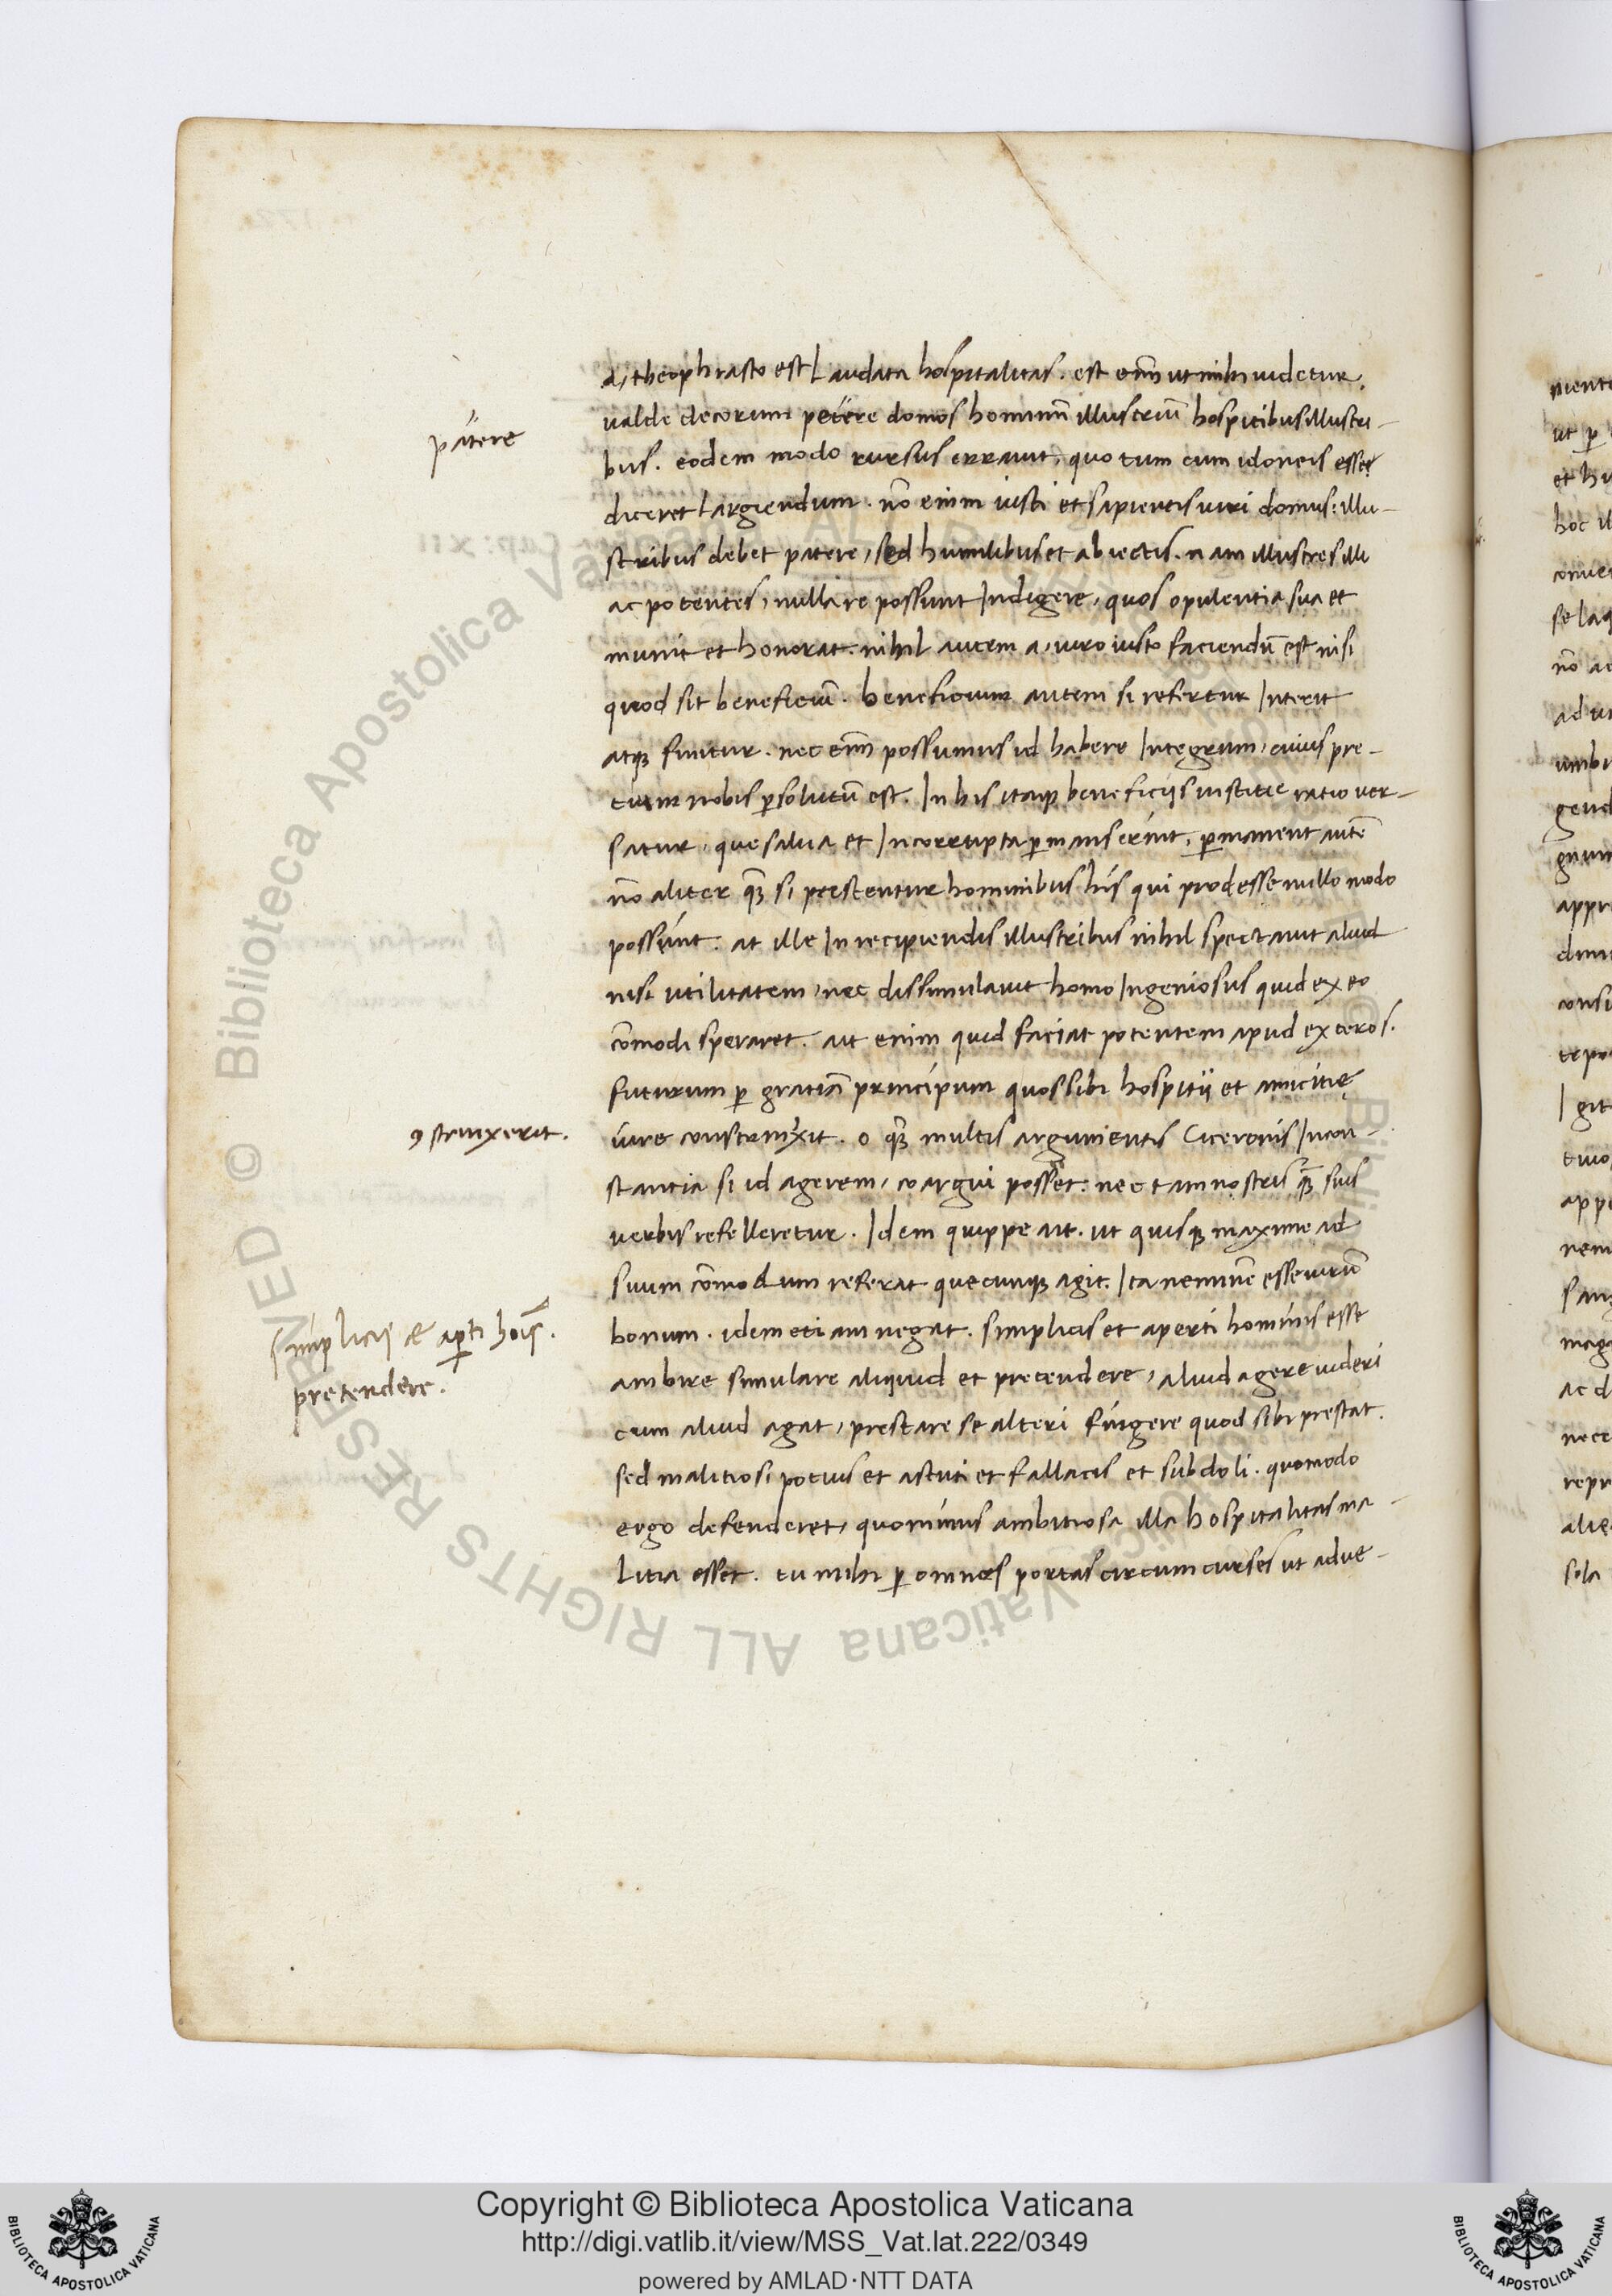 a, theophrasto est Laudata hospitalitas. est enim̄ ut mihi uidetur.
valde decorum petere domos hominū illustriū hospitibus illustri-
pátere
bus. eodem modo rursus errauit, quo tum cum idoneis esset
diceret Largiendum. nō enim iusti et sapientis uiri domus: illu-
stribus debet patere, sed humilibus et abiectis. nam illustres illi
ac potentes, nulla re possunt Indigere, quos opulentia sua et
munit et honorat. nihil autem a, uiro iusto faciendū est nisi
quod sit beneficiū. beneficium autem si refertur Interit
atqꝫ finitur. nec enī possumus id habere Integrum, cuius pre-
tium nobis ꝑsolutū est. In his itaqꝫ beneficijs iustitie ratio uer-
satur, que salua et Incorrupta ꝑmanserint, ꝑmanent autē
nō aliter qꝫ̄ si prestentur hominibus hís qui prodesse nullo modo
possunt. at ille In recipiendis illustribus nihil spectauit aliud
nisi utilitatem, nec dissimulauit homo Ingeniosus quid ex eo
cōmodi speraret. ait enim quid faciat potentem apud exteros.
futurum ꝑ gratiā principum quos sibi hospitij et amicitię
ꝯstrinxerit.
iure constrinxit. o qꝫ̄ multis argumentis Ciceronis Incon-
stantia si id agerem, coargui posset. nec tam nostris qꝫ̄ suis
verbis refelleretur. Idem quippe ait. ut quisqꝫ maxime ad
suum cōmodum referat quecunqꝫ agit. Ita neminē esse uirū
simplicis & aꝑti hoīs.
bonum. idem etiam negat. simplicis et aperti hominis esse
ambire simulare aliquid et pretendere, aliud agere uideri
pretendere.
cum aliud agat, prestare se alteri fingere quod sibi prestat.
sed malitiosi potius et astuti et fallacis et subdoli. quomodo
ergo defenderet, quominus ambitiosa illa hospitalitas ma-
Litia esset. tu mihi ꝑ omnes portas circumcurses ut adue-
Copyright © Biblioteca Apostolica Vaticana
http://digi.vatlib.it/view/MSS_Vat.lat.222/0349
powered by AMLAD·NTT DATA
BIBLIOTECA APOSTOLICA VATICANA
BIBLIOTECA APOSTOLICA VATICANA
© Biblioteca Apostolica Vaticana ALL RIGHTS RESERVED